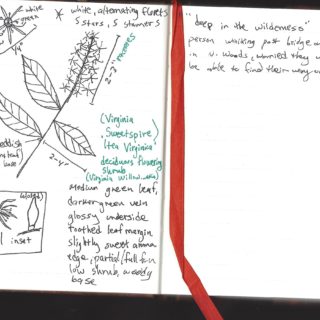 white
green
* white, alternating florets
5 stars, 5 stamens
2-3" racemes
(Virginia
Sweetspire)
Itea Virginia
deciduous flowering
shrub
(Virginia willow...
eddish
base
2-4"
Medium green leaf,
darker green vein
glossy underside
toothed leaf margin
slightly sweet aroma
edge, partial/full sun
low shrub, woody
base
closed
inset
"deep in the wilderness"
person walking past bridge
in N. Woods, worried they w
be able to find their way o